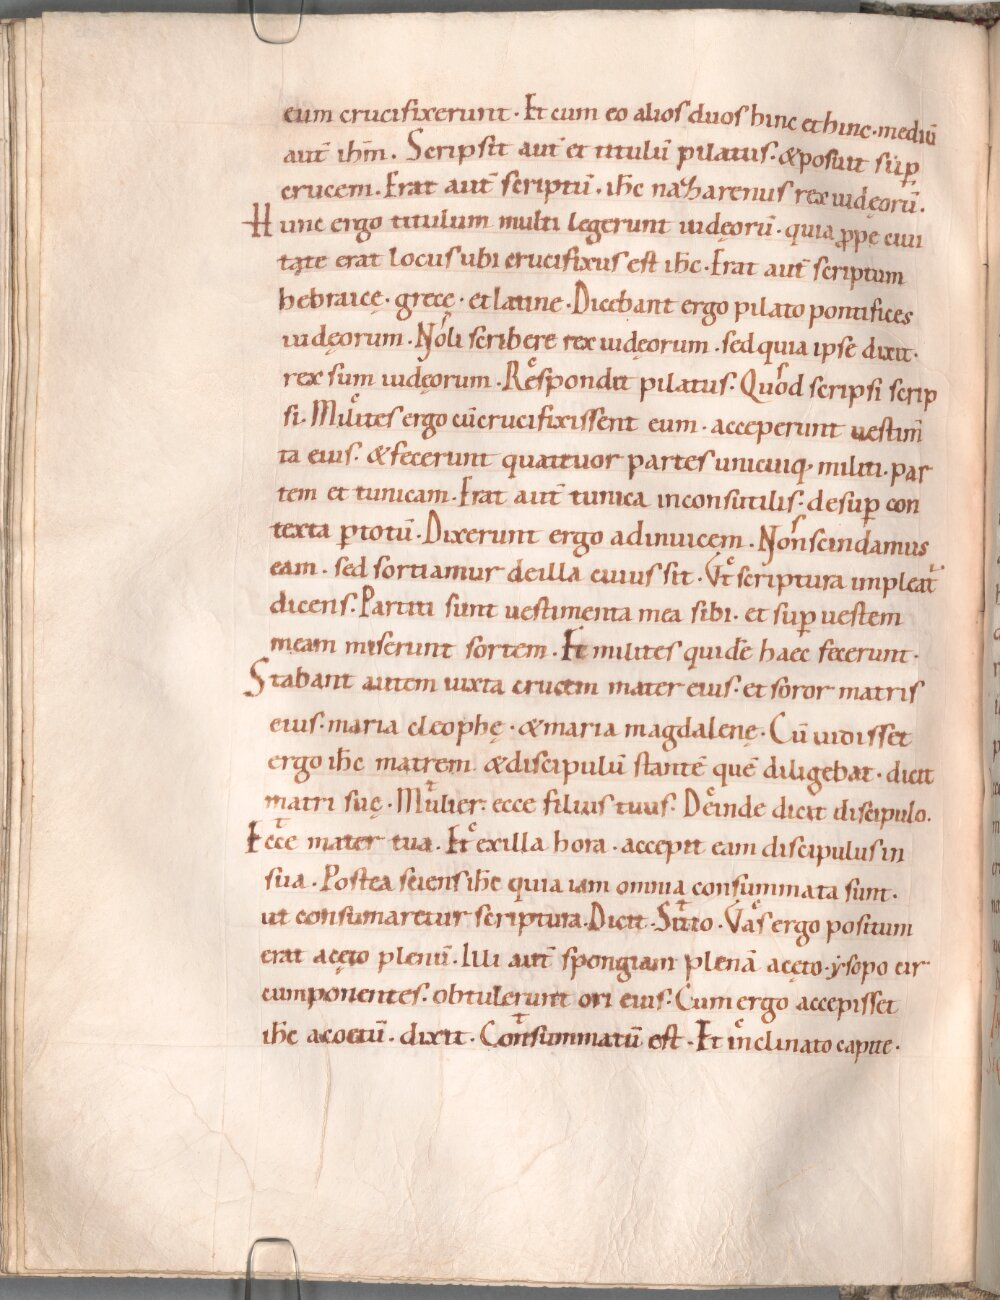 eum crucifixerunt· Et cum eo alios duos hinc et hinc· mediū
aut̄ ih̄m. Scripsit aut̄ et titulū pilatus· & posuit sup̄
crucem. Erat aut̄ scriptū· ih̄c nazarenus rex iudęorū.
Hunc ergo titulum multi legerunt iudęorū· quia ꝓpe ciui
tate erat locus ubi crucifixus est ih̄c· Erat aut̄ scriptum
hebraicę· grecę· et latine· Dicebant ergo pilato pontifices
iudęorum· Noli scribere rex iudęorum· sed quia ipse dixit·
rex sum iudęorum· Respondit pilatus· Quod scripsi scrip
si· Milites ergo cū crucifixissent eum· acceperunt uestim̄
ta eius· & fecerunt quattuor partes unicuiq· militi· par
tem et tunicam· Erat aut̄ tunica inconsutilis· desup̄ con
texta ꝑ totū· Dixerunt ergo adinuicem· Non scindamus
eam· sed sortiamur de illa cuius sit· Vt scriptura impleat᷑
dicens· Partiti sunt uestimenta mea sibi· et sup̄ uestem
meam miserunt sortem· Et milites quidē haec fecerunt·
Stabant autem iuxta crucem mater eius· et soror matris
eius· maria cleophę· & maria magdalenę· Cū uidisset
ergo ih̄c matrem & discipulū stantē quē diligebat· dicit
matri suę· Mulier· ecce filius tuus· Deinde dicit discipulo.
Ecce mater tua· Et ex illa hora· accepit eam discipulus in
sua· Postea sciens ih̄c quia iam omnia consummata sunt·
ut consumaretur scriptura· Dicit· Sitio· Vas ergo positum
erat acęto plenū· Illi aut̄ spongiam plenā acęto· ysopo cir
cumponentes· obtulerunt ori eius· Cum ergo accepisset
ih̄c acoetū· dixit· Consummatū est· Et inclinato capite·